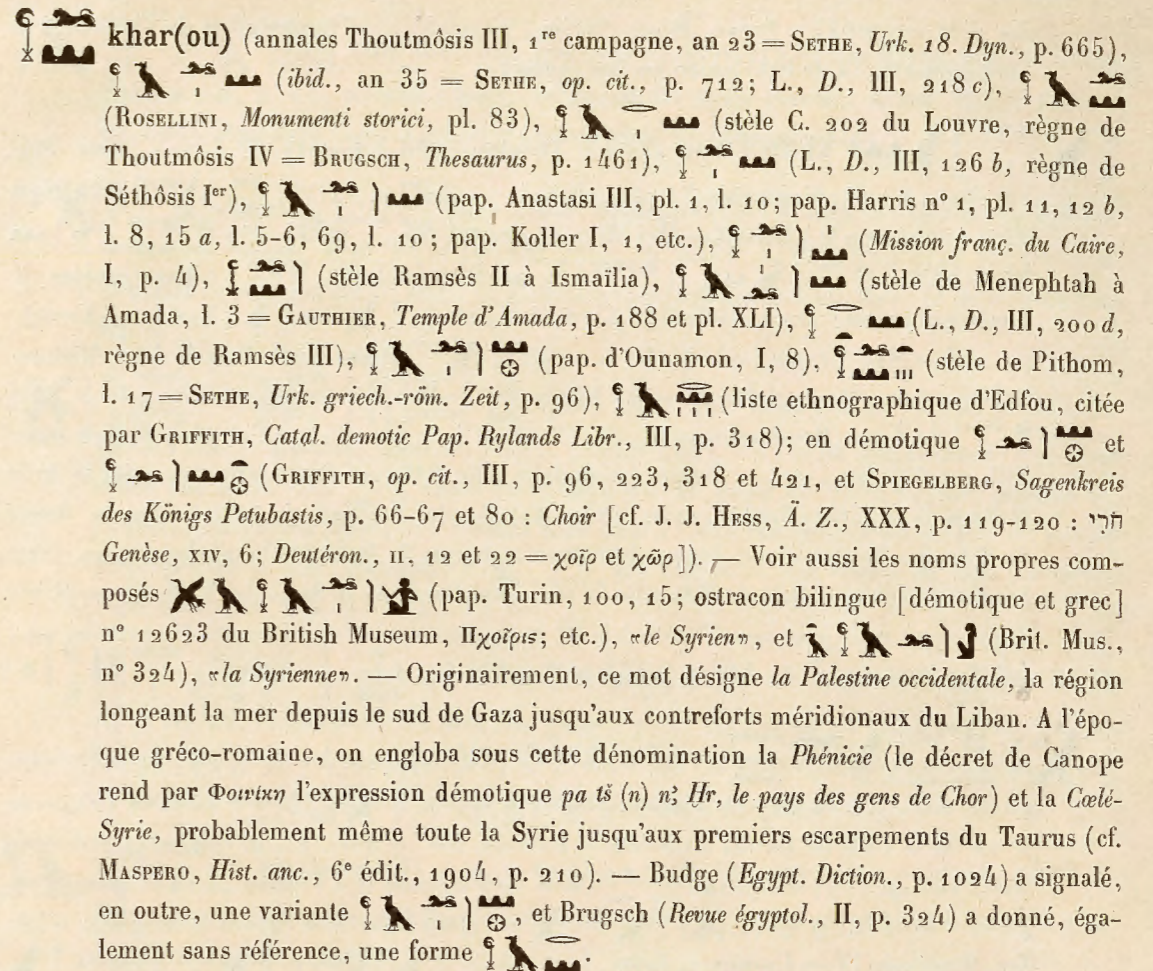 khar(ou) (annales Thoutmôsis III, 1re campagne, an 23 = SETHE, Urk. 18. Dyn., p. 665),
(ibid., an 35 = SETHE, op. cit., p. 712; L., D., III, 218 c),
(ROSELLINI, Monumenti storici, pl. 83), (stèle C. 202 du Louvre, règne de
Thoutmôsis IV = BRUGSCH, Thesaurus, p. 1461), (L., D., III, 126 b, règne de
Séthôsis Ier), (pap. Anastasi III, pl. 1, l. 10; pap. Harris n° 1, pl. 11, 12 b,
l. 8, 15 a, l. 5-6, 69, l. 10; pap. Koller I, 1, etc.), (Mission franç. du Caire,
I, p. 4), (stèle Ramsès II à Ismaïlia), (stèle de Menephtah à
Amada, l. 3 = GAUTHIER, Temple d'Amada, p. 188 et pl. XLI), (L., D., III, 200 d,
règne de Ramsès III), (pap. d'Ounamon, I, 8), (stèle de Pithom,
l. 17 = SETHE, Urk. griech.-röm. Zeit, p. 96), (liste ethnographique d'Edfou, citée
par GRIFFITH, Catal. demotic Pap. Rylands Libr., III, p. 318); en démotique et
(GRIFFITH, op. cit., III, p. 96, 223, 318 et 421, et SPIEGELBERG, Sagenkreis
des Königs Petubastis, p. 66-67 et 80 : Choir [cf. J. J. HESS, Ä. Z., XXX, p. 119-120 : חֹרִי
Genèse, XIV, 6; Deutéron., II, 12 et 22 = χοῖρ et χῶρ]). — Voir aussi les noms propres com-
posés (pap. Turin, 100, 15; ostracon bilingue [démotique et grec]
n° 12623 du British Museum, Πχοῖρις; etc.), «le Syrien», et (Brit. Mus.,
n° 324), «la Syrienne». — Originairement, ce mot désigne la Palestine occidentale, la région
longeant la mer depuis le sud de Gaza jusqu'aux contreforts méridionaux du Liban. A l'épo-
que gréco-romaine, on engloba sous cette dénomination la Phénicie (le décret de Canope
rend par Φοινίκη l'expression démotique pa tš (n) nꜣ Ḫr, le pays des gens de Chor) et la Cœlé-
Syrie, probablement même toute la Syrie jusqu'aux premiers escarpements du Taurus (cf.
MASPERO, Hist. anc., 6e édit., 1904, p. 210). — Budge (Egypt. Diction., p. 1024) a signalé,
en outre, une variante , et Brugsch (Revue égyptol., II, p. 324) a donné, éga-
lement sans référence, une forme .